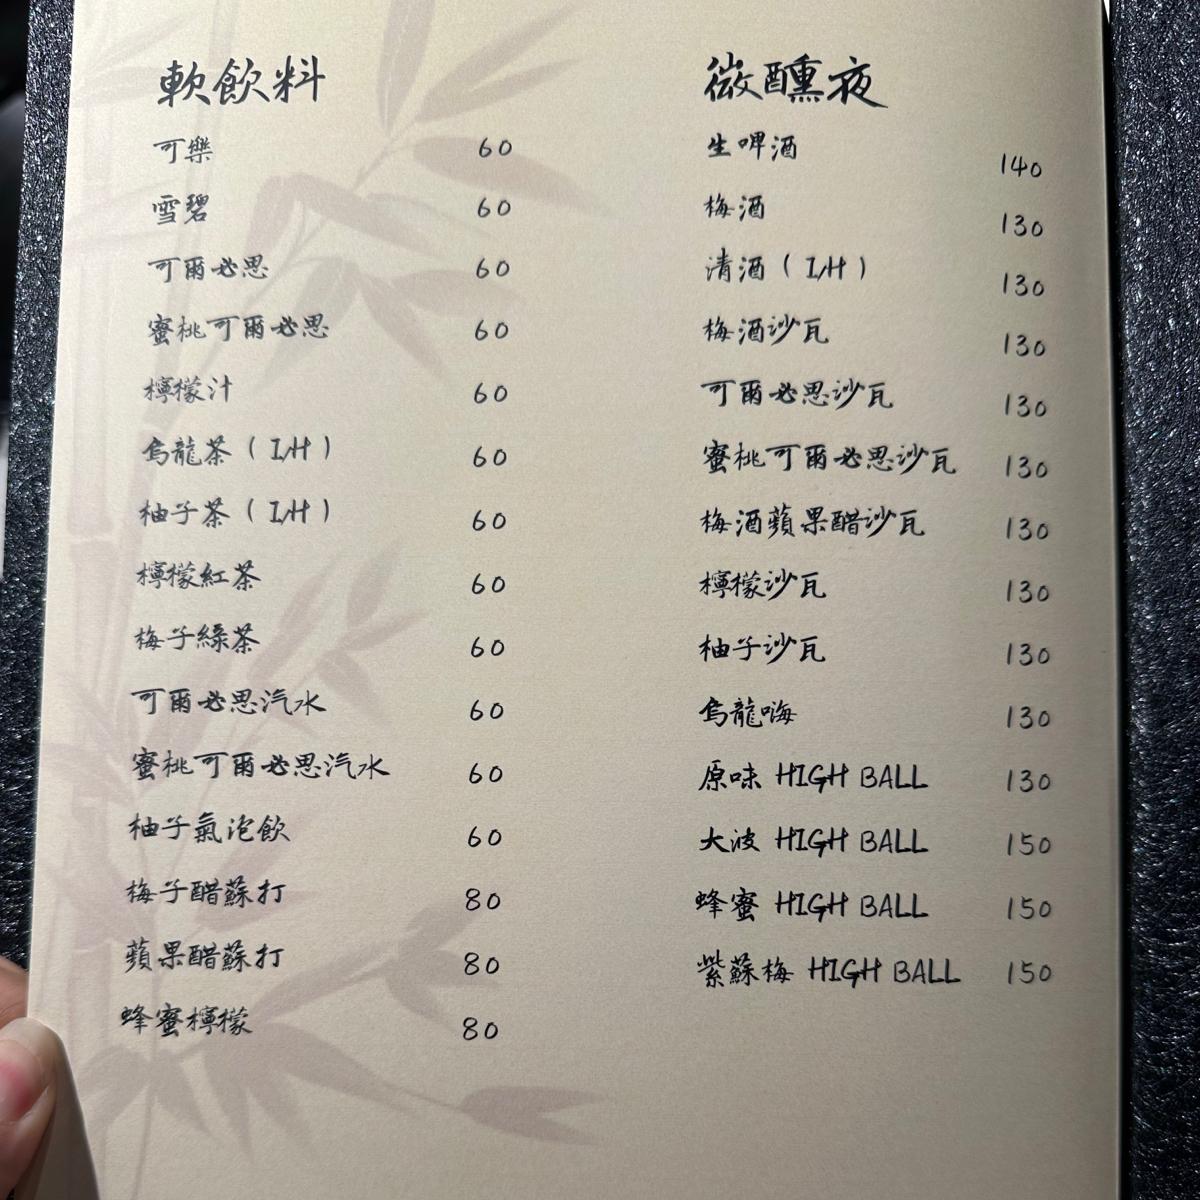 軟飲料
可樂 60
雪碧 60
可爾必思 60
蜜桃可爾必思 60
檸檬汁 60
烏龍茶 ( I/H ) 60
柚子茶 ( I/H ) 60
檸檬紅茶 60
梅子綠茶 60
可爾必思汽水 60
蜜桃可爾必思汽水 60
柚子氣泡飲 60
梅子醋蘇打 80
蘋果醋蘇打 80
蜂蜜檸檬 80
微醺夜
生啤酒 140
梅酒 130
清酒 ( I/H ) 130
梅酒沙瓦 130
可爾必思沙瓦 130
蜜桃可爾必思沙瓦 130
梅酒蘋果醋沙瓦 130
檸檬沙瓦 130
柚子沙瓦 130
烏龍嗨 130
原味 HIGH BALL 130
大波 HIGH BALL 150
蜂蜜 HIGH BALL 150
紫蘇梅 HIGH BALL 150